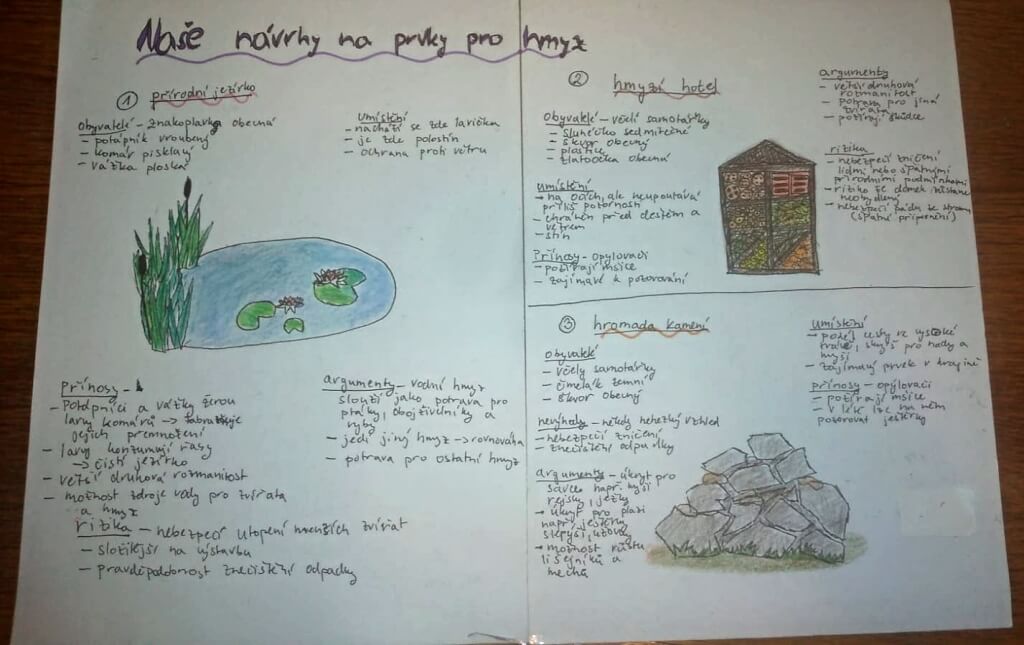 Naše návrhy na prvky pro hmyz
① přírodní jezírko
Obyvatelé - znakoplavka obecná
- potápník vroubený
- komár pisklavý
- vážka ploská
Umístění
- nachází se zde lavička
- je zde polostín
- ochrana proti větru
Přínosy -
- Potápníci a vážky žerou
larvy komárů → zabraňuje
jejich přemnožení
- larvy konzumují řasy
→ čistí jezírko
- větší druhová rozmanitost
- možnost zdroje vody pro zvířata
a hmyz
argumenty - vodní hmyz
slouží jako potrava pro
ptáky, obojživelníky a
ryby
- jedí jiný hmyz → rovnováha
- potrava pro ostatní hmyz
rizika - nebezpečí utopení menších zvířat
- složitější na výstavbu
- pravděpodobnost znečištění odpadky
② hmyzí hotel
Obyvatelé - včely samotářky
- slunéčko sedmitečné
- škvor obecný
- ploštice
- zlatoočka obecná
umístění
→ na očích, ale neupoutává
příliš pozornosti
- chráněn před deštěm a
větrem
- stín
Přínosy - opylovači
- požírají mšice
- zajímavé k pozorování
argumenty
- větší druhová
rozmanitost
- potrava pro jiná
zvířata
- požírají škůdce
rizika
- nebezpečí zničení
lidmi nebo špatnými
přírodními podmínkami
- riziko že domek zůstane
neobydlený
- nebezpečí pádu ze stromu
(špatné připevnění)
③ hromada kamení
obyvatelé
- včely samotářky
- čmelák zemní
- škvor obecný
nevýhody - někdy nehezký vzhled
- nebezpečí zničení
- znečištění odpadky
argumenty - úkryt pro
savce např. myši
rejsky, ježky
→ úkryt pro plazi
např. ještěrky,
slepýši, užovky
→ možnost růstu
lišejníků a
mechů
umístění
- podél cesty ve vysoké
trávě, skrýš pro hady a
myši
- zajímavý prvek v krajině
přínosy - opylovači
- požírají mšice
- v létě lze na něm
pozorovat ještěrky